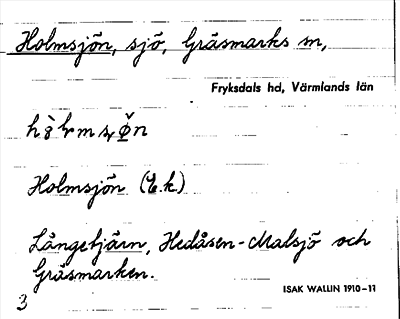 Holmsjön, sjö, Gräsmarks sn,
Fryksdals hd, Värmlands län
Holmsjön (E.k.)
Långetjärn, Hedåsen-Malsjö och
Gräsmarken.
ISAK WALLIN 1910-11
3